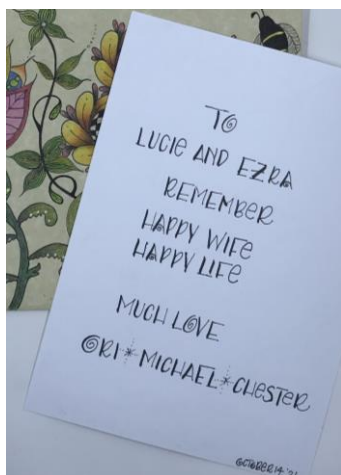 TO
LUCIE AND EZRA
REMEMBER
HAPPY WIFE
HAPPY LIFE
MUCH LOVE
ORI*MICHAEL*CHESTER
OCTOBER 14 '21